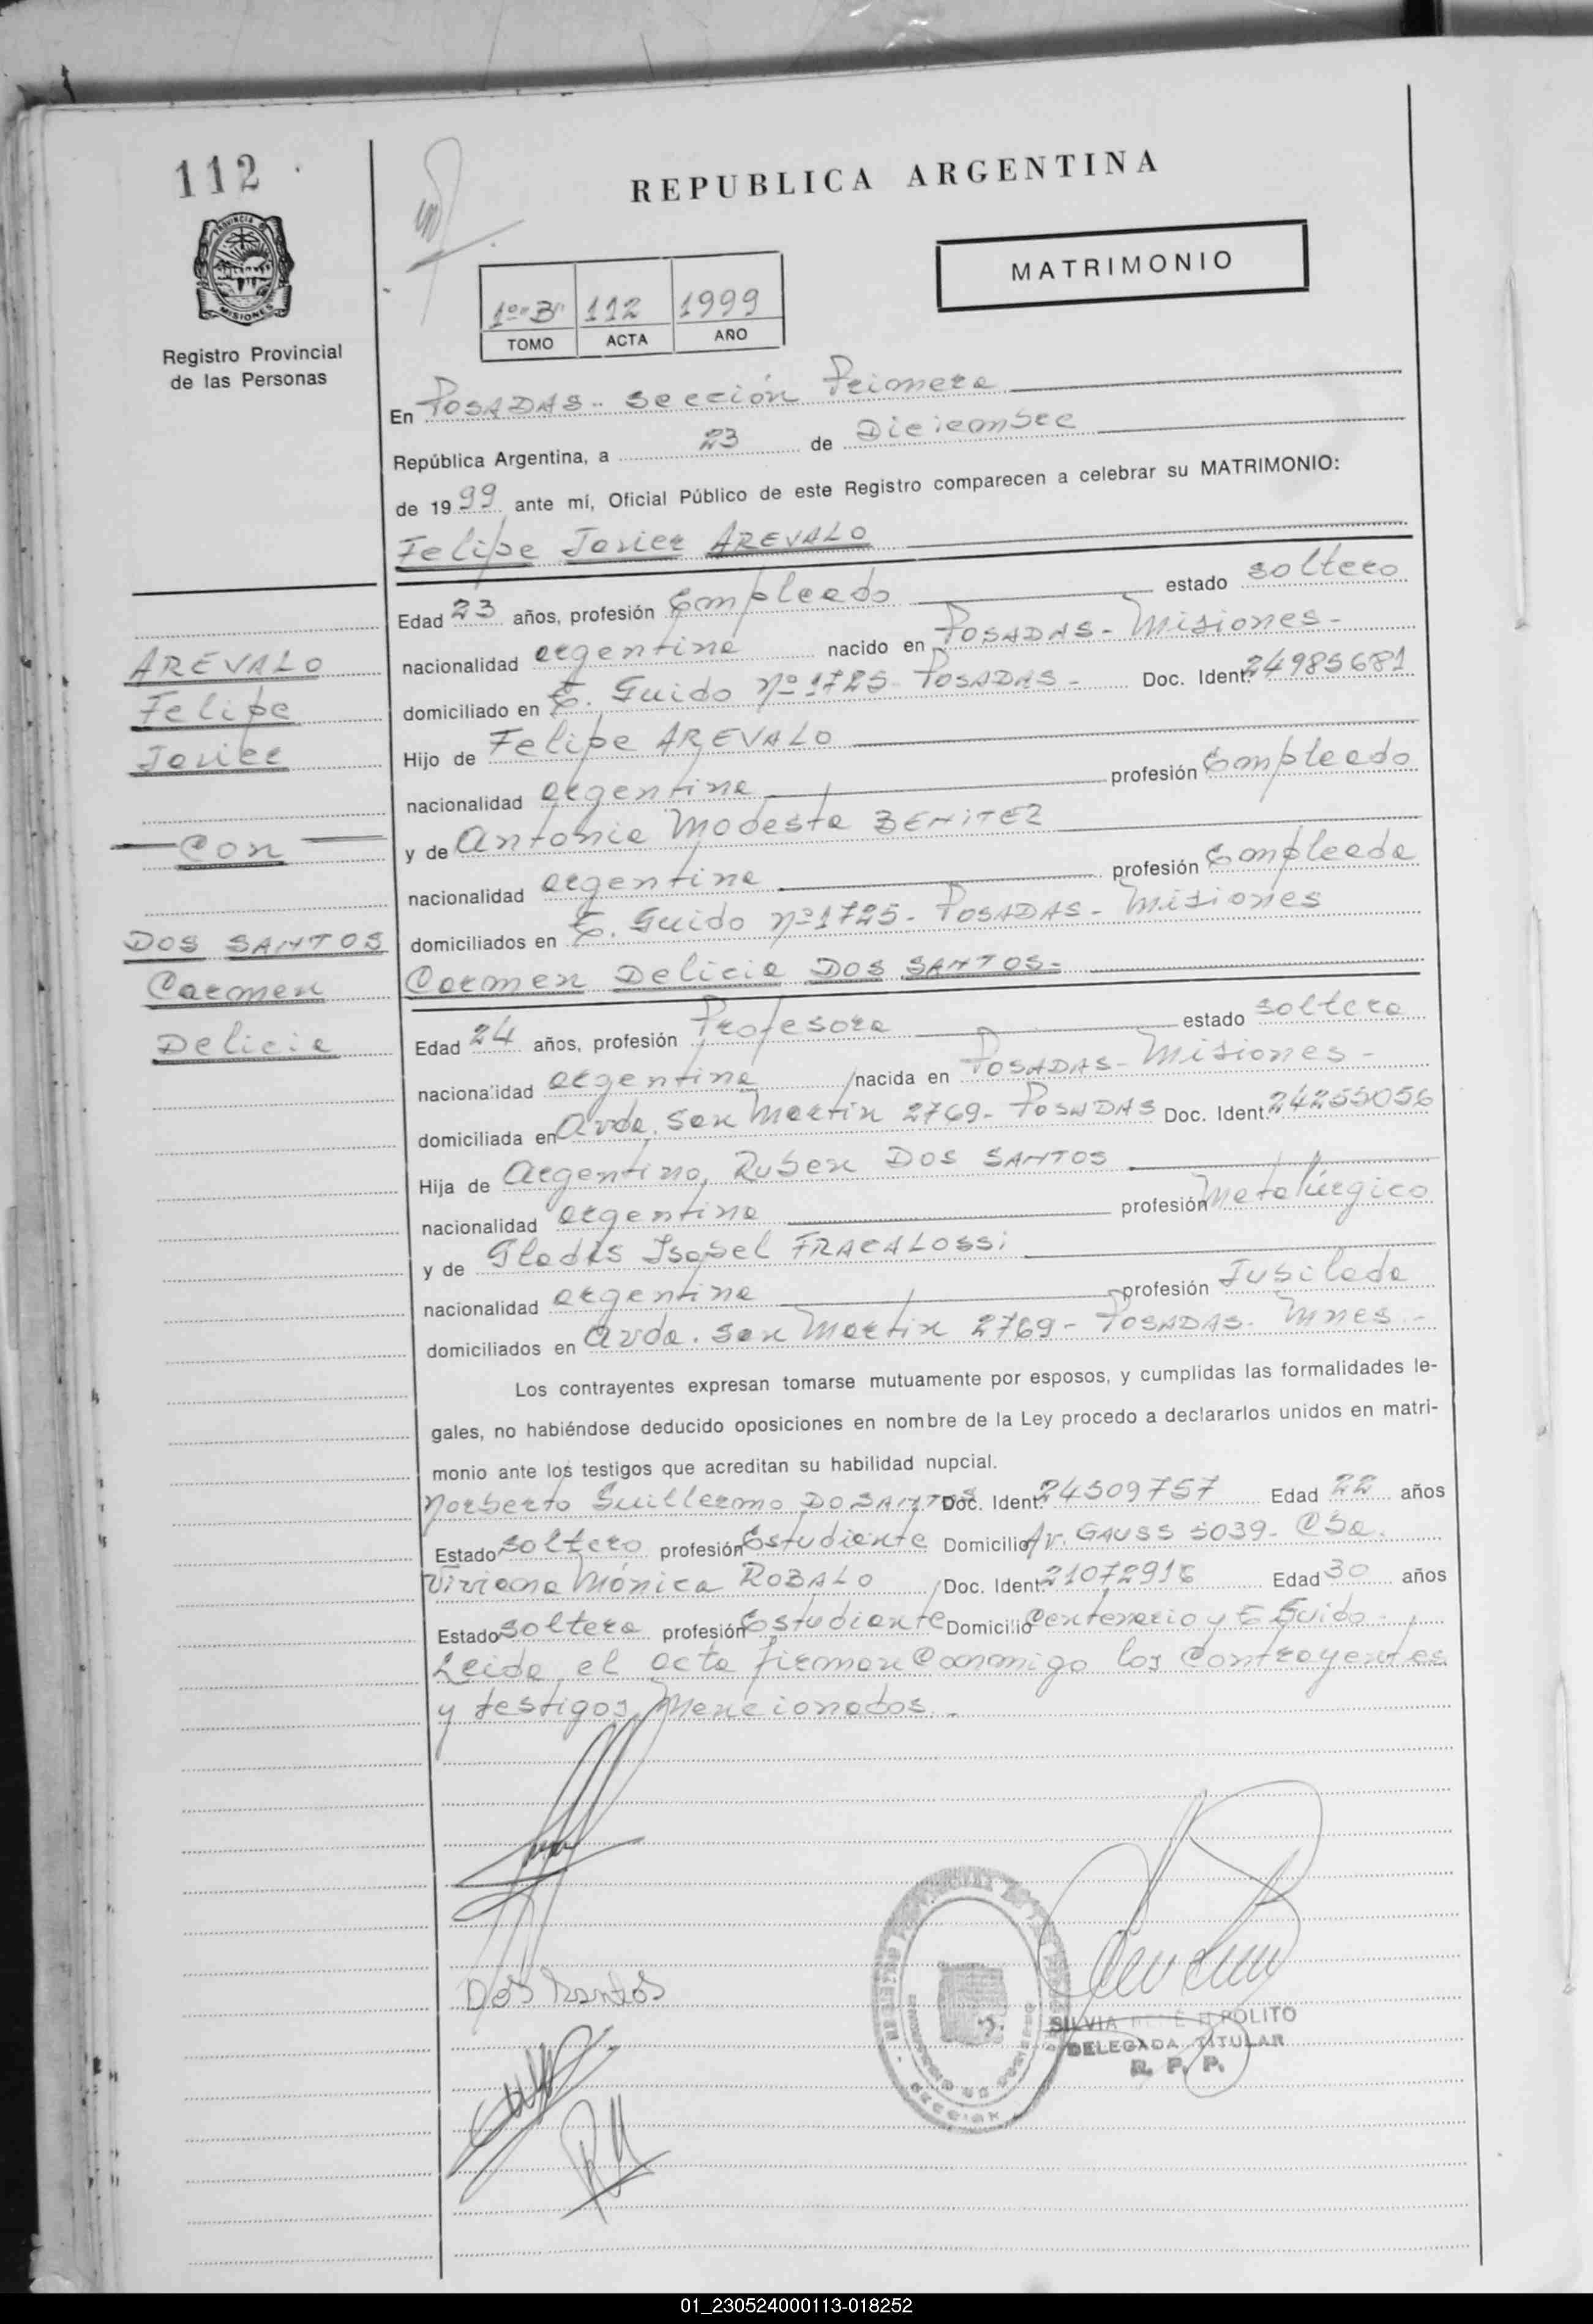 112
REPUBLICA ARGENTINA
MATRIMONIO
PROVINCIA
MISIONES
Registro Provincial
de las Personas
1º "B" 112 1999
TOMO ACTA AÑO
En POSADAS - sección Primera
República Argentina, a 23 de Diciembre
de 1999 ante mí, Oficial Público de este Registro comparecen a celebrar su MATRIMONIO:
Felipe Javier AREVALO
Edad 23 años, profesión Empleado estado soltero
nacionalidad argentina nacido en POSADAS - Misiones -
domiciliado en E. Guido nº 1725 - POSADAS - Doc. Ident. 24985681
Hijo de Felipe AREVALO
nacionalidad argentina profesión Empleado
y de Antonia Modesta BENITEZ
nacionalidad argentina profesión Empleada
domiciliados en E. Guido nº 1725 - POSADAS - Misiones
Carmen Delicia DOS SANTOS -
Edad 24 años, profesión Profesora estado soltera
nacionalidad argentina nacida en POSADAS - Misiones -
domiciliada en Avda. San Martin 2769 - POSADAS Doc. Ident. 24255056
Hija de Argentino Ruben DOS SANTOS
nacionalidad argentina profesión Metalúrgico
y de Gladis Isabel FRACALOSSi
nacionalidad argentina profesión Jubilada
domiciliados en Avda. San Martin 2769 - POSADAS - Mnes. -
Los contrayentes expresan tomarse mutuamente por esposos, y cumplidas las formalidades le-
gales, no habiéndose deducido oposiciones en nombre de la Ley procedo a declararlos unidos en matri-
monio ante los testigos que acreditan su habilidad nupcial.
Norberto Guillermo DO SANTOS Doc. Ident. 24509757 Edad 22 años
Estado soltero profesión Estudiante Domicilio Av. GAUSS 5039 - Cba.
Viviana Mónica ROBALO Doc. Ident. 21072918 Edad 30 años
Estado soltera profesión Estudiante Domicilio Centenario y E Guido -
Leida el acta firman Conmigo los Contrayentes
y testigos Mencionados. -
AREVALO
Felipe
Javier
Con
DOS SANTOS
Carmen
Delicia
Dos Santos
SILVIA RENÉ HIPOLITO
DELEGADA TITULAR
R. P. P.
01_230524000113-018252